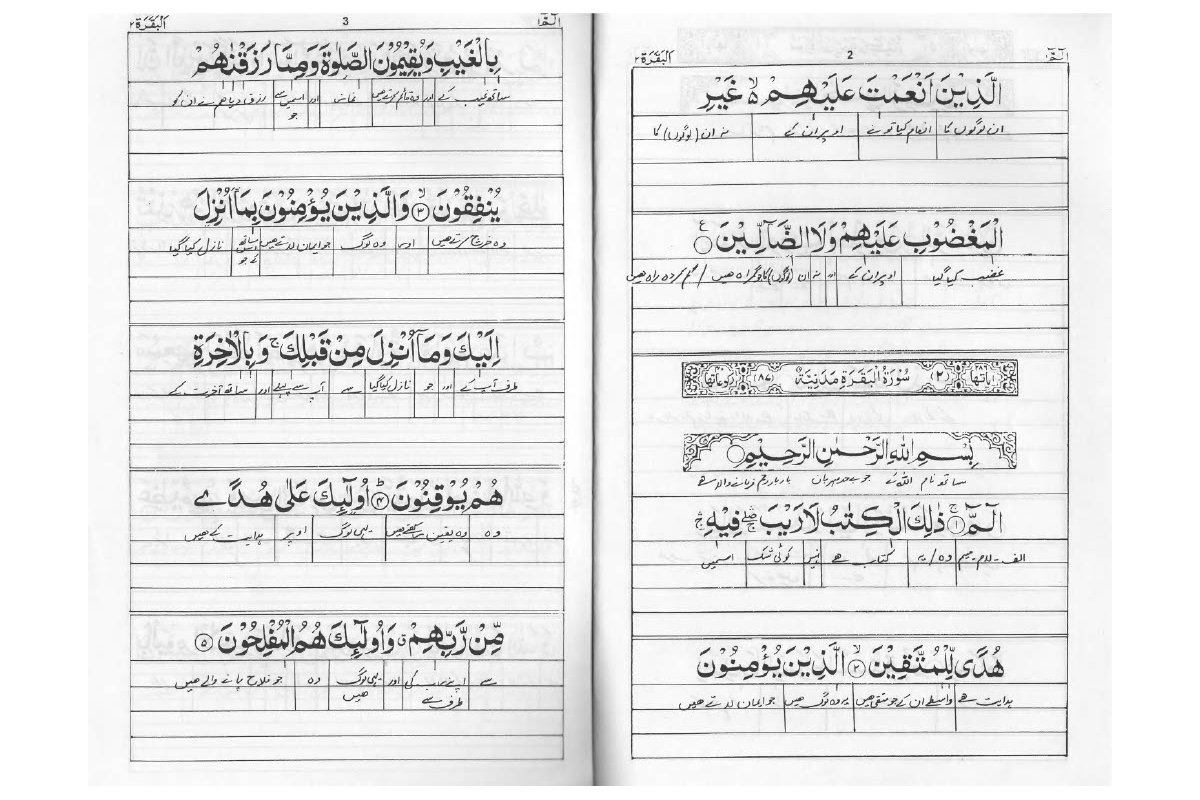 الٓمّٓ ١ 2 اَلْبَقَرَة ٢
الَّذِيْنَ اَنْعَمْتَ عَلَيْهِمْ ۙ غَيْرِ
ان لوگوں کا انعام کیا تو نے اوپر ان کے نہ ان (لوگوں) کا
الْمَغْضُوْبِ عَلَيْهِمْ وَلَا الضَّآلِّيْنَ ع
غضب کیا گیا اوپر ان کے اور نہ ان (لوگوں) کا جو گمراہ ھیں / گم کردہ راہ ھیں
اٰیاتھا ٢٨٦ (٢) سُوْرَةُ الْبَقَرَةِ مَدَنِيَّةٌ (٨٧) رکوعاتھا ٤٠
بِسْمِ اللّٰهِ الرَّحْمٰنِ الرَّحِيْمِ
ساتھ نام اللہ کے جو بےحد مہربان بار بار رحم فرمانے والا ھے
الٓمّٓ ۚ ١ ذٰلِكَ الْكِتٰبُ لَا رَيْبَ ۛ فِيْهِ ۛ
الف - لام - میم وہ / یہ کتاب ھے نہیں کوئی شک اسمیں
هُدًى لِّلْمُتَّقِيْنَ ۙ ٢ الَّذِيْنَ يُؤْمِنُوْنَ
ہدایت ھے واسطے ان کے جو متقی ھیں یہ وہ لوگ ھیں جو ایمان لاتے ھیں
الٓمّٓ ١ 3 اَلْبَقَرَة ٢
بِالْغَيْبِ وَيُقِيْمُوْنَ الصَّلٰوةَ وَمِمَّا رَزَقْنٰهُمْ
ساتھ غیب کے اور وہ قائم کرتے ھیں نماز اور اسمیں سے جو رزق دیا ھم نے ان کو
يُنْفِقُوْنَ ۙ ٣ وَالَّذِيْنَ يُؤْمِنُوْنَ بِمَآ اُنْزِلَ
وہ خرچ کرتے ھیں اور وہ لوگ جو ایمان لاتے ھیں ساتھ اس کے جو نازل کیا گیا
اِلَيْكَ وَمَآ اُنْزِلَ مِنْ قَبْلِكَ ۚ وَبِالْاٰخِرَةِ
طرف آپ کے اور جو نازل کیا گیا سے آپ سے پہلے اور ساتھ آخرت کے
هُمْ يُوْقِنُوْنَ ؕ ٤ اُولٰٓئِكَ عَلٰى هُدًى
وہ وہ یقین رکھتے ھیں یہی لوگ اوپر ہدایت کے ھیں
مِّنْ رَّبِّهِمْ ۗ وَاُولٰٓئِكَ هُمُ الْمُفْلِحُوْنَ ٥
سے اپنے رب کی طرف سے اور یہی لوگ ھیں وہ جو فلاح پانے والے ھیں